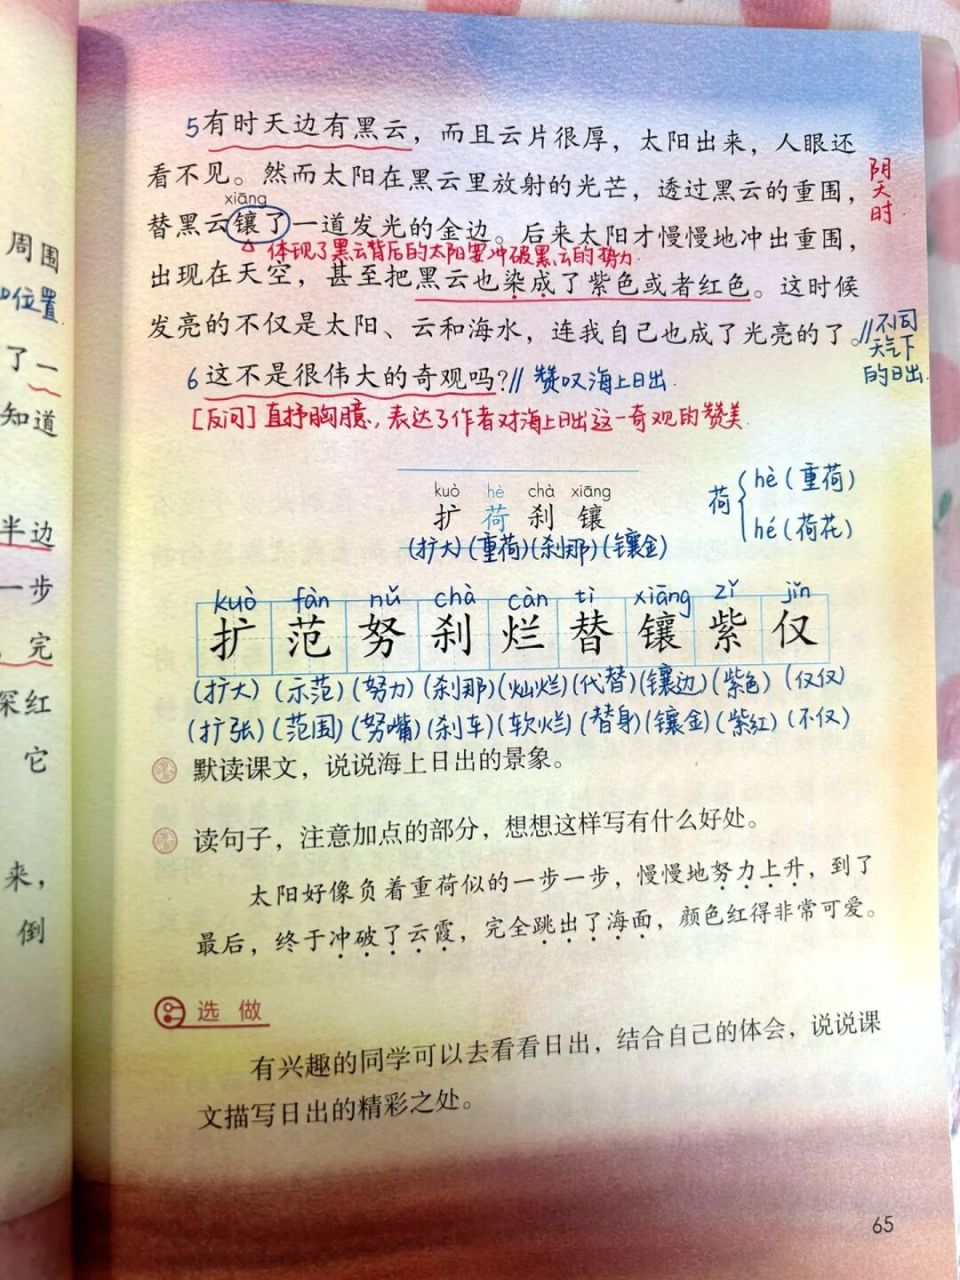 周围
位置
了一
知道
半边
一步
，完
深红
它
来，
倒
5有时天边有黑云，而且云片很厚，太阳出来，人眼还
看不见。然而太阳在黑云里放射的光芒，透过黑云的重围，
阴天时
xiāng
替黑云镶了一道发光的金边。后来太阳才慢慢地冲出重围，
体现了黑云背后的太阳要冲破黑云的势力
出现在天空，甚至把黑云也染成了紫色或者红色。这时候
发亮的不仅是太阳、云和海水，连我自己也成了光亮的了。//不同
天气下
的日出
6这不是很伟大的奇观吗？//赞叹海上日出
[反问]直抒胸臆，表达了作者对海上日出这一奇观的赞美
kuò hè chà xiāng
扩 荷 刹 镶
(扩大)(重荷)(刹那)(镶金)
荷{hè(重荷)
hé(荷花)
kuò fàn nǔ chà làn tì xiāng zǐ jǐn
扩 范 努 刹 烂 替 镶 紫 仅
(扩大)(示范)(努力)(刹那)(灿烂)(代替)(镶边)(紫色)(仅仅)
(扩张)(范围)(努嘴)(刹车)(软烂)(替身)(镶金)(紫红)(不仅)
默读课文，说说海上日出的景象。
读句子，注意加点的部分，想想这样写有什么好处。
太阳好像负着重荷似的一步一步，慢慢地努力上升，到了
最后，终于冲破了云霞，完全跳出了海面，颜色红得非常可爱。
选做
有兴趣的同学可以去看看日出，结合自己的体会，说说课
文描写日出的精彩之处。
65